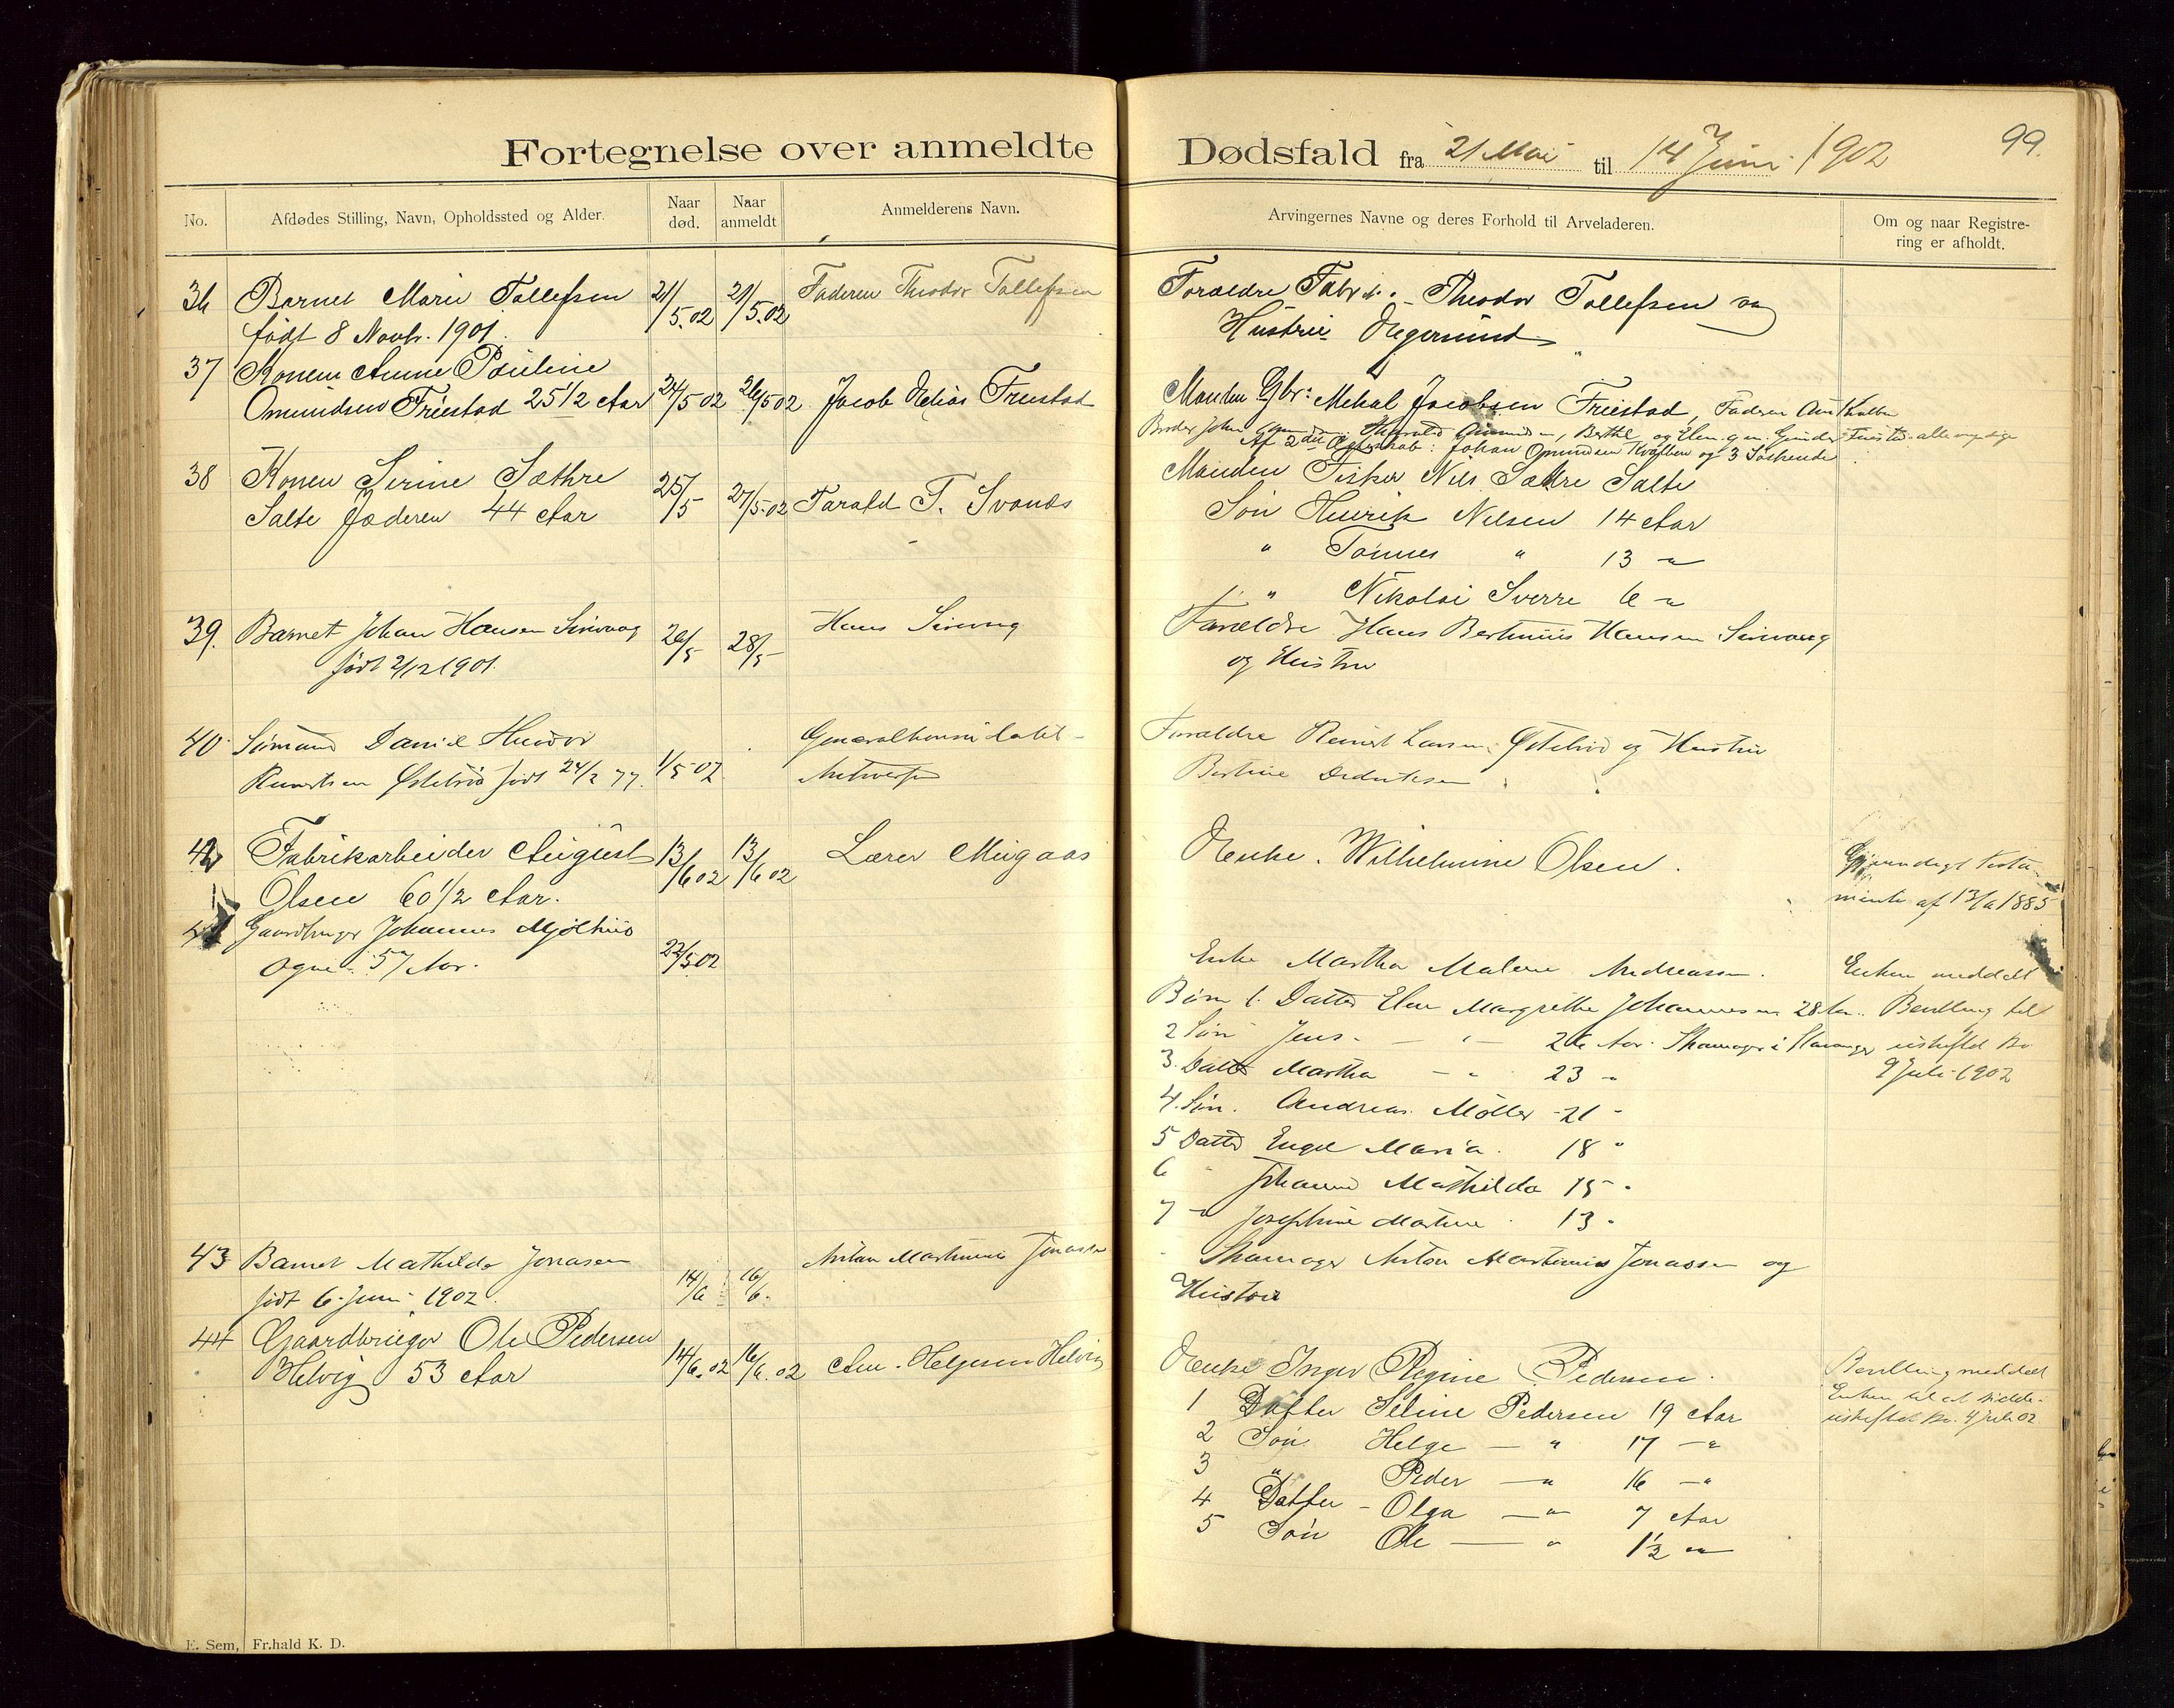 Fortegnelse over anmeldte Dødsfald fra 21 Mai til 14 Juni 1902
99.
No.
Afdødes Stilling, Navn, Opholdssted og Alder.
Naar død.
Naar anmeldt
Anmelderens Navn.
Arvingernes Navne og deres Forhold til Arveladeren.
Om og naar Registrering er afholdt.
36 Barnet Marie Tollefsen 21/5.02 21/5.02 Faderen Theodor Tollefsen
født 8 Novb. 1901.
Forældre Theodor Tollefsen og
Hustru Egersund
37 Konen Anne Pauline
Omundsen Friestad 25 1/2 Aar 24/5 02 26/5 02 Jacob Friestad
Manden Gbr: Mikal Jacobsen Friestad, Faderen
Af 2det Ægteskab: Johan Omundsen Kvalben og 3 Søskende
38 Konen Serine Sæthre
Salte Jæderen 44 Aar 25/5 27/5.02 Tarald T. Svanes
Manden Fisker Nils Sæthre Salte
Søn Henrik Nilsen 14 Aar
" Tønnes " 13 "
" Nikolai Sverre 6 "
39. Barnet Johan Hansen Sirevaag 26/5 28/5 Hans Sirevaag
født 2/12 1901.
Forældre Hans Bertinius Hansen Sirevaag
og Hustru
40 Sømand Daniel
Østebrød født 24/2 77. 1/5 02 Generalkonsulatet
Antwerpen
Forældre Reinert Larsen Østebrød og Hustru
Bertine
42 Fabrikarbeider August 13/6 02 13/6 02 Lærer Mligaas
Olsen 60 1/2 Aar.
Enke. Wilhelmine Olsen.
Gjensidigt Testamente af 1885
Gaardbruger Johannes Mjølhus
Ogne 57 Aar. 22/5 02
Enke Martha Malene Andreassen.
Børn 1. Datter Elen Margrethe Johannessen 28 Aar.
2 Søn Jens - " - 26 Aar. Skomager i Stavanger
3. Datter Martha - " 23 "
4. Søn. Andreas Møller - 21 "
5 Datter Engel Maria. 18 "
6 " Johanne Mathilde 15 "
7 " Josephine Martine 13 "
Enken meddelt
Bevilling til
uskiftet Bo
9 Juli 1902
43 Barnet Mathilde Jonasen
født 6 Juni 1902. 14/6 16/6. Anton Martinius Jonassen
Skomager Anton Martinius Jonassen og
Hustru
44 Gaardbruger Ole Pedersen
Helvig 53 Aar 14/6.02 16/6.02 Helgesen Helvig
Enke Inger Regine Pedersen.
1 Datter Seline Pedersen 19 Aar
2 Søn Helge — " 17 — "
3 " Peder — " 16 — "
4 Datter - Olga — " 7 Aar
5 Søn Ole — " 1 1/2 "
Bevilling meddelt
Enken til at sidde i
uskiftet Bo. 4 Juli 02
E. Sem, Fr.hald K. D.